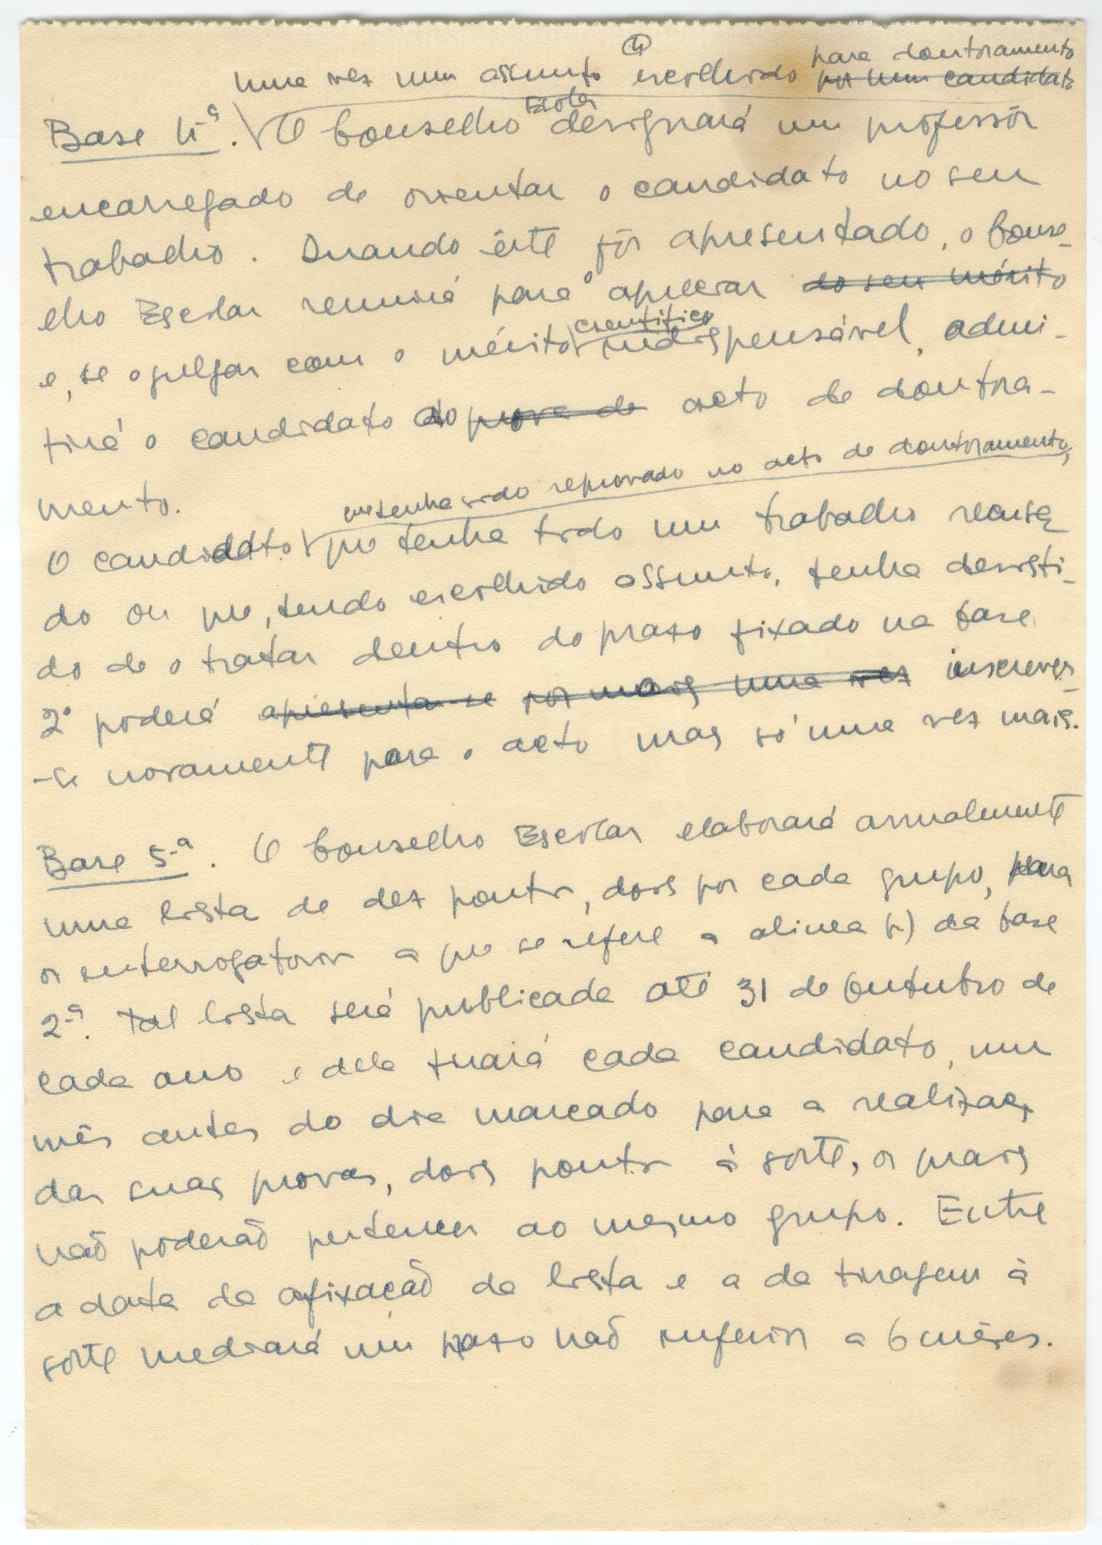 ④
para doutoramento
uma vez um assunto escolhido por um candidato
Base 4ª. O Conselho Escolar designará um professor
encarregado de orientar o candidato no seu
trabalho. Quando êste fôr apresentado, o Conse-
elho Escolar reunirá para o apreciar do seu mérito
e, se o julgar com o mérito científico indispensável, admi-
tirá o candidato ao prova de acto de doutora-
mento.
que tenha sido reprovado no acto de doutoramento,
O candidato que tenha tido um trabalho recusa
do ou que, tendo escolhido assunto, tenha desisti-
do de o tratar dentro do prazo fixado na base
2ª poderá apresenta-se por mais uma vez inscrever-
-se novamente para o acto mas só uma vez mais.
Base 5ª. O Conselho Escolar elaborará anualmente
uma lista de dez pontos, dois por cada grupo, para
os interrogatorios a que se refere a alinea b) da base
2ª. Tal lista será publicada até 31 de Outubro de
cada ano e dela tirará cada candidato, um
mês antes do dia marcado para a realizaç.
das suas provas, dois pontos à sorte, os quais
não poderão pertencer ao mesmo grupo. Entre
a data da afixação da lista e a da tiragem à
sorte mediará um prazo não inferior a 6 mêses.